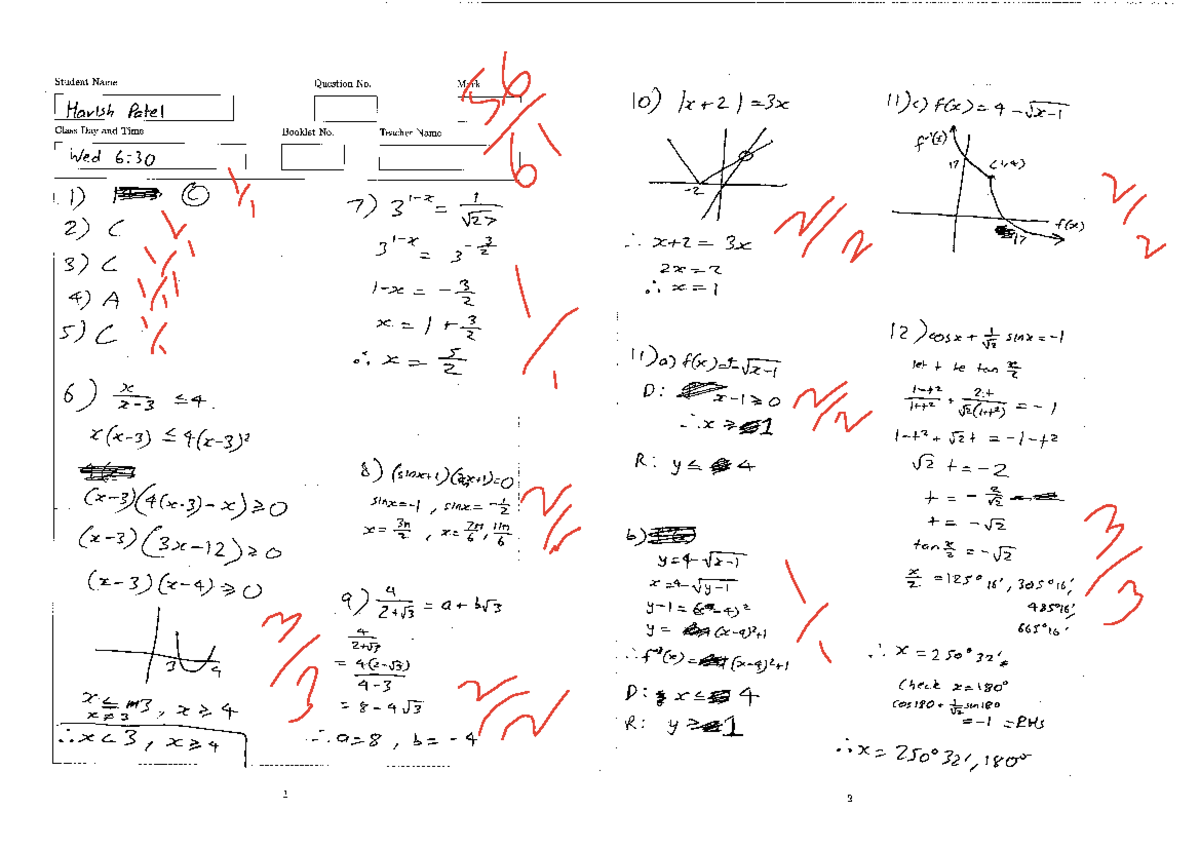 Student Name
Question No.
Mark
56/61
Havish Patel
Class Day and Time
Booklet No.
Teacher Name
Wed 6:30
1) C
2) C
3) C
4) A
5) C
6) x/(x-3) ≤ 4
x(x-3) ≤ 4(x-3)²
(x-3)(4(x-3)-x) ≥ 0
(x-3)(3x-12) ≥ 0
(x-3)(x-4) ≥ 0
3 4
x ≤ 3, x ≥ 4
x ≠ 3
∴ x < 3, x ≥ 4
3/3
7) 3^(1-x) = 1/√27
3^(1-x) = 3^(-3/2)
1-x = -3/2
x = 1 + 3/2
∴ x = 5/2
1/1
8) (sinx+1)(2sinx+1)=0
sinx=-1, sinx = -1/2
x = 3π/2, x = 7π/6, 11π/6
9) 4/(2+√3) = a + b√3
4/(2+√3)
= 4(2-√3)/(4-3)
= 8 - 4√3
∴ a=8, b= -4
2/2
1
10) |x+2| = 3x
-2
∴ x+2 = 3x
2x = 2
∴ x = 1
2/2
11)a) f(x)=4-√(x-1)
D: x-1 ≥ 0
∴ x ≥ 1
R: y ≤ 4
2/2
b)
y = 4-√(x-1)
x = 4-√(y-1)
y-1 = (x-4)²
y = (x-4)²+1
∴ f⁻¹(x) = (x-4)²+1
D: x ≤ 4
R: y ≥ 1
1/1
11)c) f(x) = 4-√(x-1)
f⁻¹(x)
17
(1,4)
f(x)
17
2/2
12) cosx + 1/√2 sinx = -1
let t be tan x/2
(1-t²)/(1+t²) + 2t/(√2(1+t²)) = -1
1-t²+√2t = -1-t²
√2 t = -2
t = -2/√2
t = -√2
tan x/2 = -√2
x/2 = 125°16', 305°16',
485°16',
665°16'
∴ x = 250°32',
Check x=180°
cos180 + 1/√2 sin180
= -1 = RHS
∴ x = 250°32', 180°
3/3